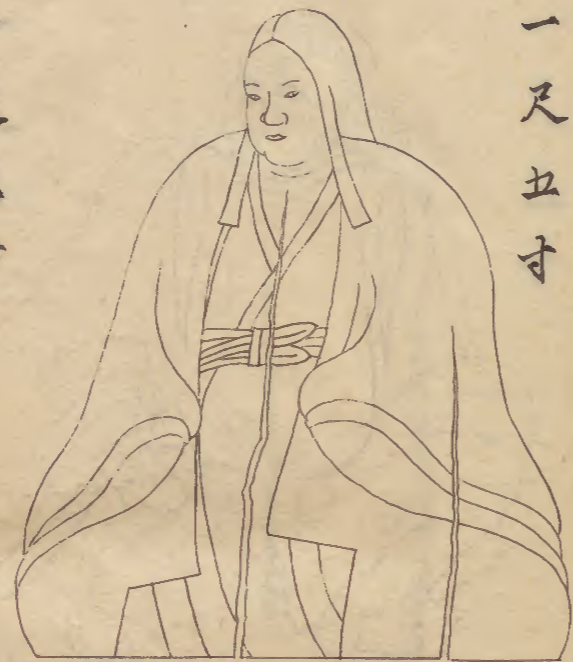 一尺五寸